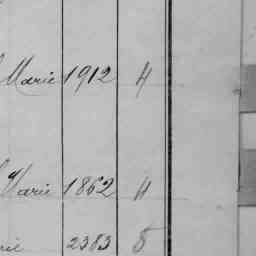 Marie 1912 4
Marie 1862 4
rie 2383 5